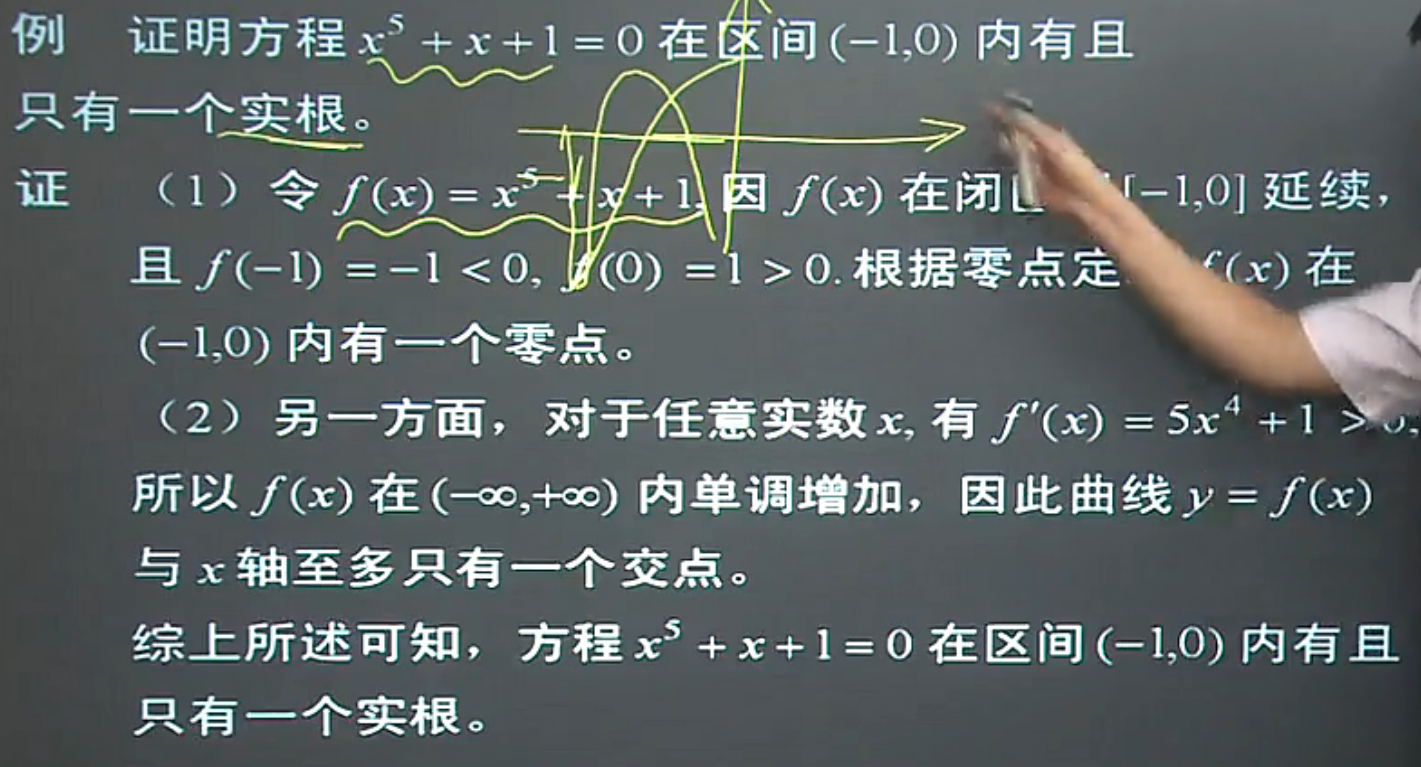 例 证明方程 x⁵ + x + 1 = 0 在区间 (−1,0) 内有且
只有一个实根。
证 （1）令 f(x) = x⁵ + x + 1, 因 f(x) 在闭 [−1,0] 延续，
且 f(−1) = −1 < 0, f(0) = 1 > 0. 根据零点定 f(x) 在
(−1,0) 内有一个零点。
（2）另一方面，对于任意实数 x, 有 f′(x) = 5x⁴ + 1 >
所以 f(x) 在 (−∞,+∞) 内单调增加，因此曲线 y = f(x)
与 x 轴至多只有一个交点。
综上所述可知，方程 x⁵ + x + 1 = 0 在区间 (−1,0) 内有且
只有一个实根。